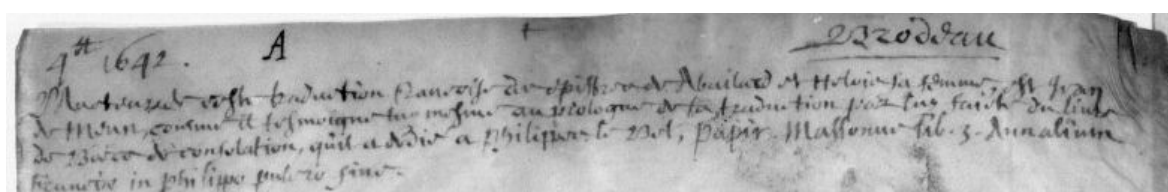 4ᵗᵗ 1642. A Brodeau
L'Autheur de ceste traduction Francoise des epistres de Abailard et Heloise sa femme, est Jean
de Meun, comme il tesmoigne luy mesme au prologue de sa traduction par luy faicte du livre
de Boece de consolation, qu'il a dedié a Philippe le Bel, Papir. Massonus lib. 3. Annalium
Franciæ in Philippo pulcro fine.